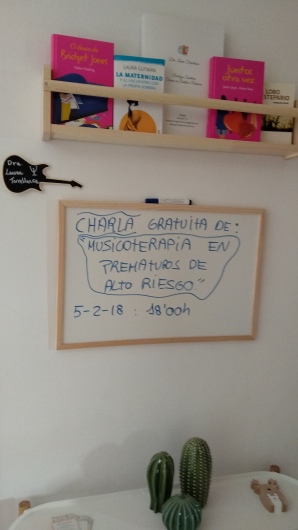 El diario de
Bridget Jones
LAURA GUTMAN
LA MATERNIDAD
Juntos
otra vez
LOBO
Dra
Laura
CHARLA GRATUITA DE:
"MUSICOTERAPIA EN
PREMATUROS DE
ALTO RIESGO"
5-2-18 : 18'00h